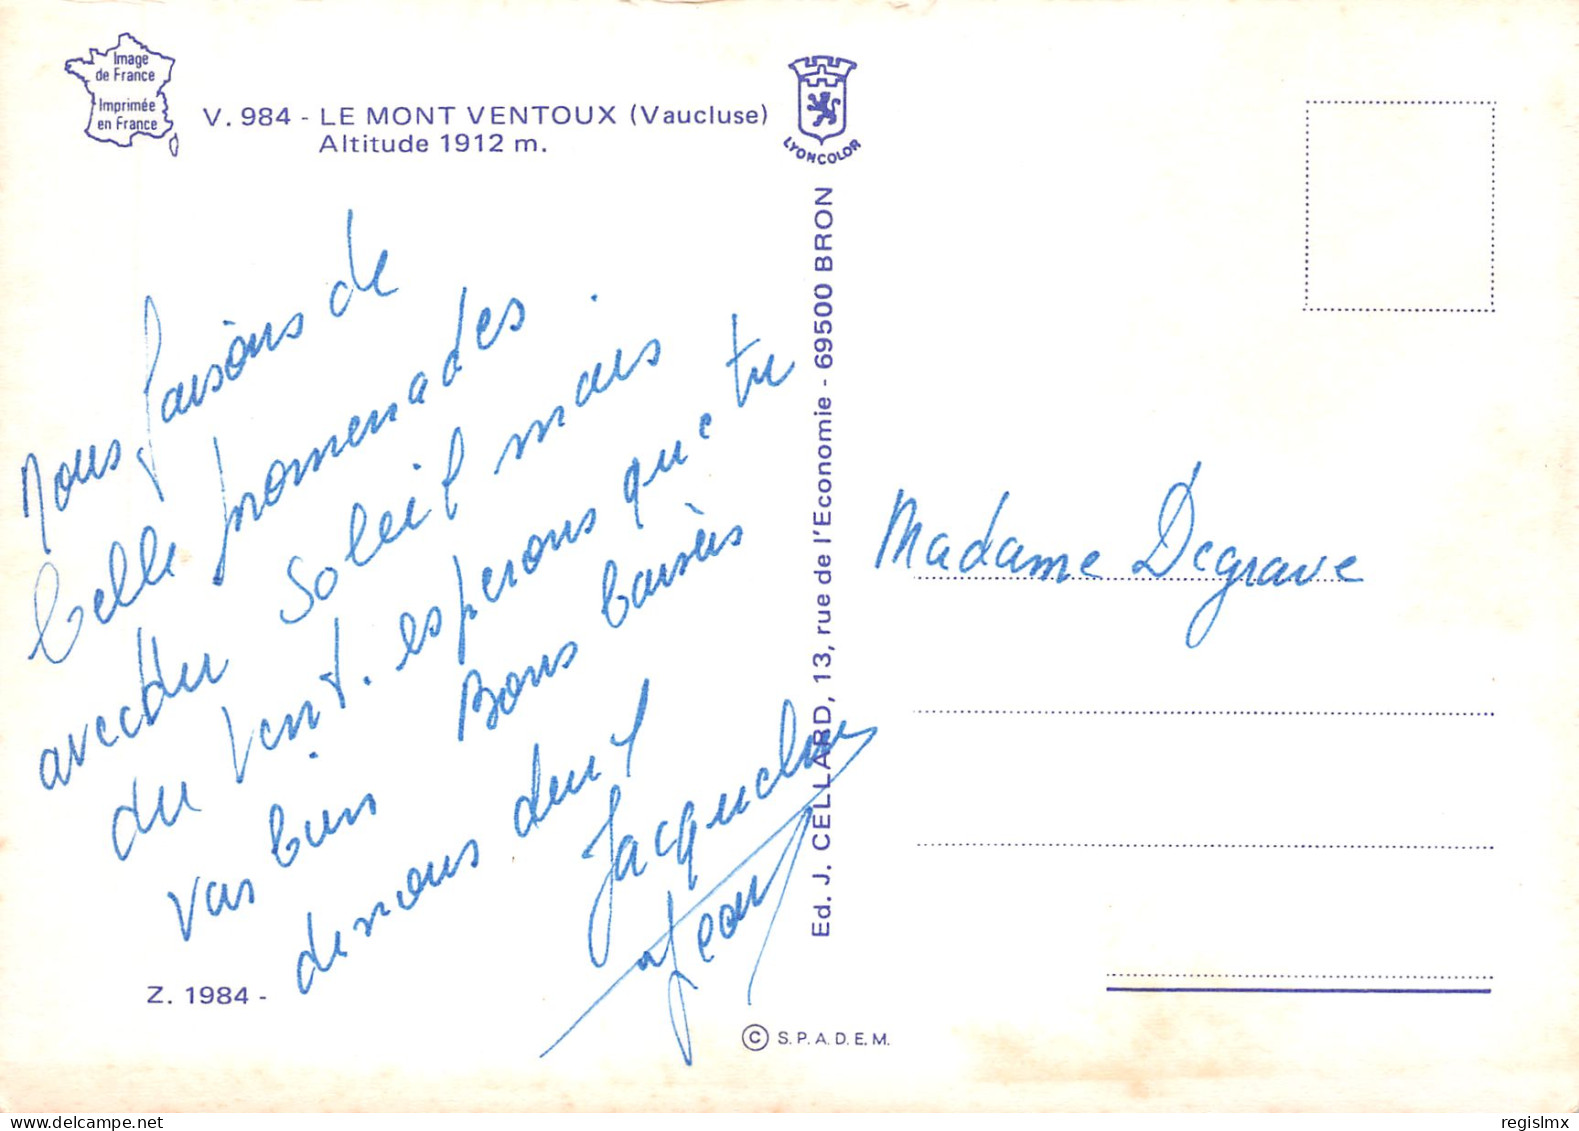 Image
de France
Imprimée
en France
V. 984 - LE MONT VENTOUX (Vaucluse)
Altitude 1912 m.
LYONCOLOR
nous faisons de
belle promenades.
avec du Soleil mais
du vent. esperons que tu
vas bien Bons baisers
de nous deux
Jacqueline
Jean
Z. 1984 -
Ed. J. CELLARD, 13, rue de l'Economie - 69500 BRON
Madame Degrave
© S.P.A.D.E.M.
regislmx